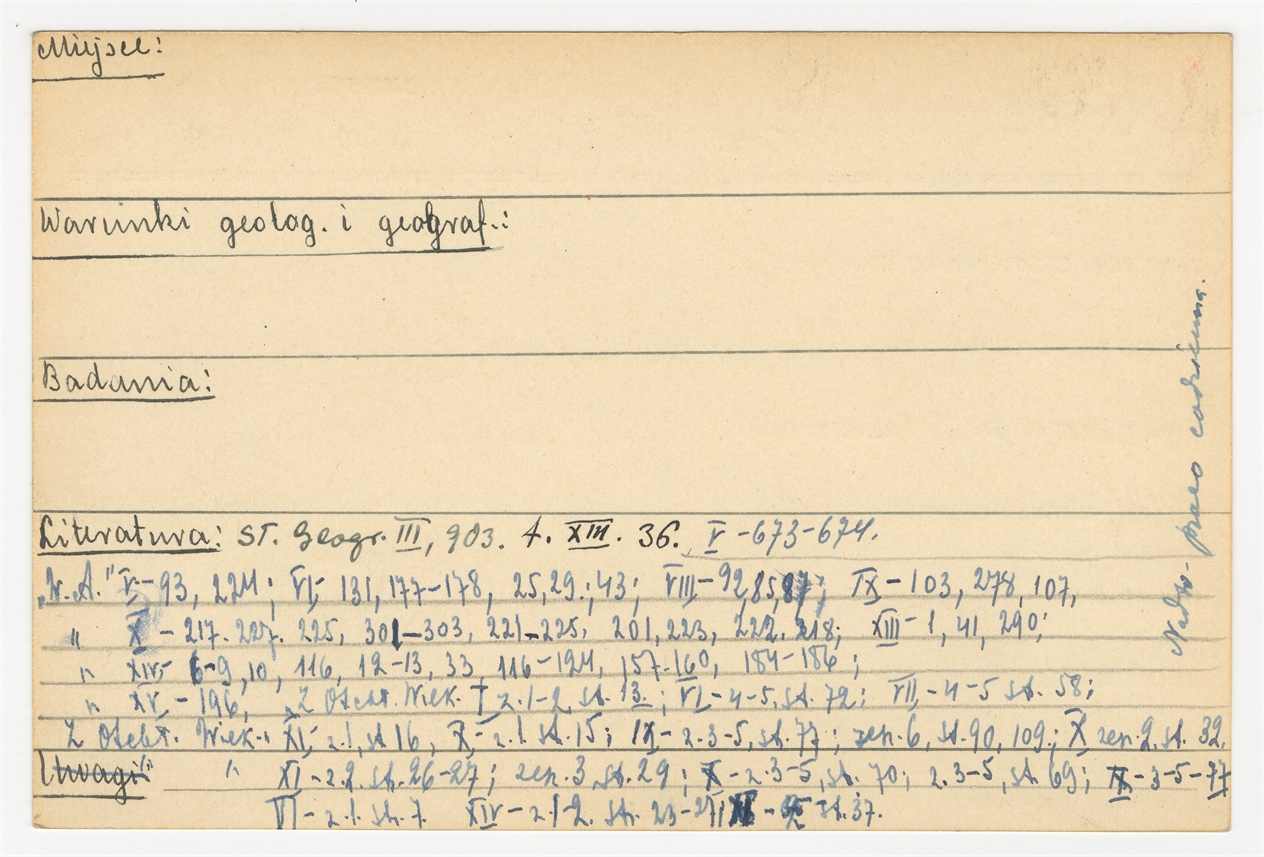 Miejsce:
Warunki geolog. i geograf.:
Badania:
Literatura: ST. Geogr. III, 903. t. XIII. 36. V - 673-674.
„W. A." V - 93, 224; VI - 131, 177-178, 25, 29.; 43; VIII - 92, 85, 87; IX - 103, 278, 107,
" X - 217. 227. 225, 301-303, 221-225, 201, 223, 222. 218; XIII - 1, 41, 290;
" XIV - 6-9, 10, 116, 12-13, 33, 116-124, 157-160, 184-186;
" XV - 196, „Z Otchł. Wiek. z. 1-2, st. 13.; VI - 4-5, st. 72; VII - 4-5 st. 58;
Z Otchł. Wiek.: XI - z. 1, st 16, X - z. 1. st. 15; IX - z. 3-5, st. 77; zesz. 6, st. 90, 109.; X zesz. 2. st. 32.
Uwagi " XI - z. 2. st. 26-27; zesz. 3 st. 29; X - z. 3-5, st. 70; z. 3-5, st. 69; IX - 3-5 - 77
VI - z. 1. st. 7. XIV - z. 1-2. str. 23- st. 37.